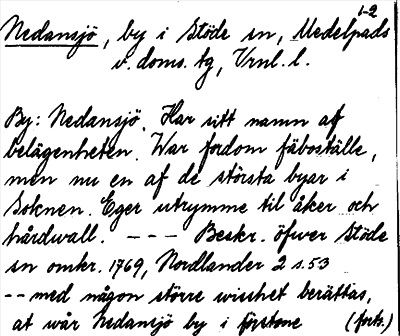 1-2
Nedansjö, by i Stöde sn, Medelpads
v. doms. tg, Vrnl. l.
By: Nedansjö. Har sitt namn af
belägenheten. War fordom fäboställe,
men nu en af de största byar i
Soknen. Eger utrymme til åker och
hårdwall. --- Beskr. öfwer Stöde
sn omkr. 1769, Nordlander 2 s. 53
-- med någon större wisshet berättas,
at wår Nedansjö by i förstone (forts.)